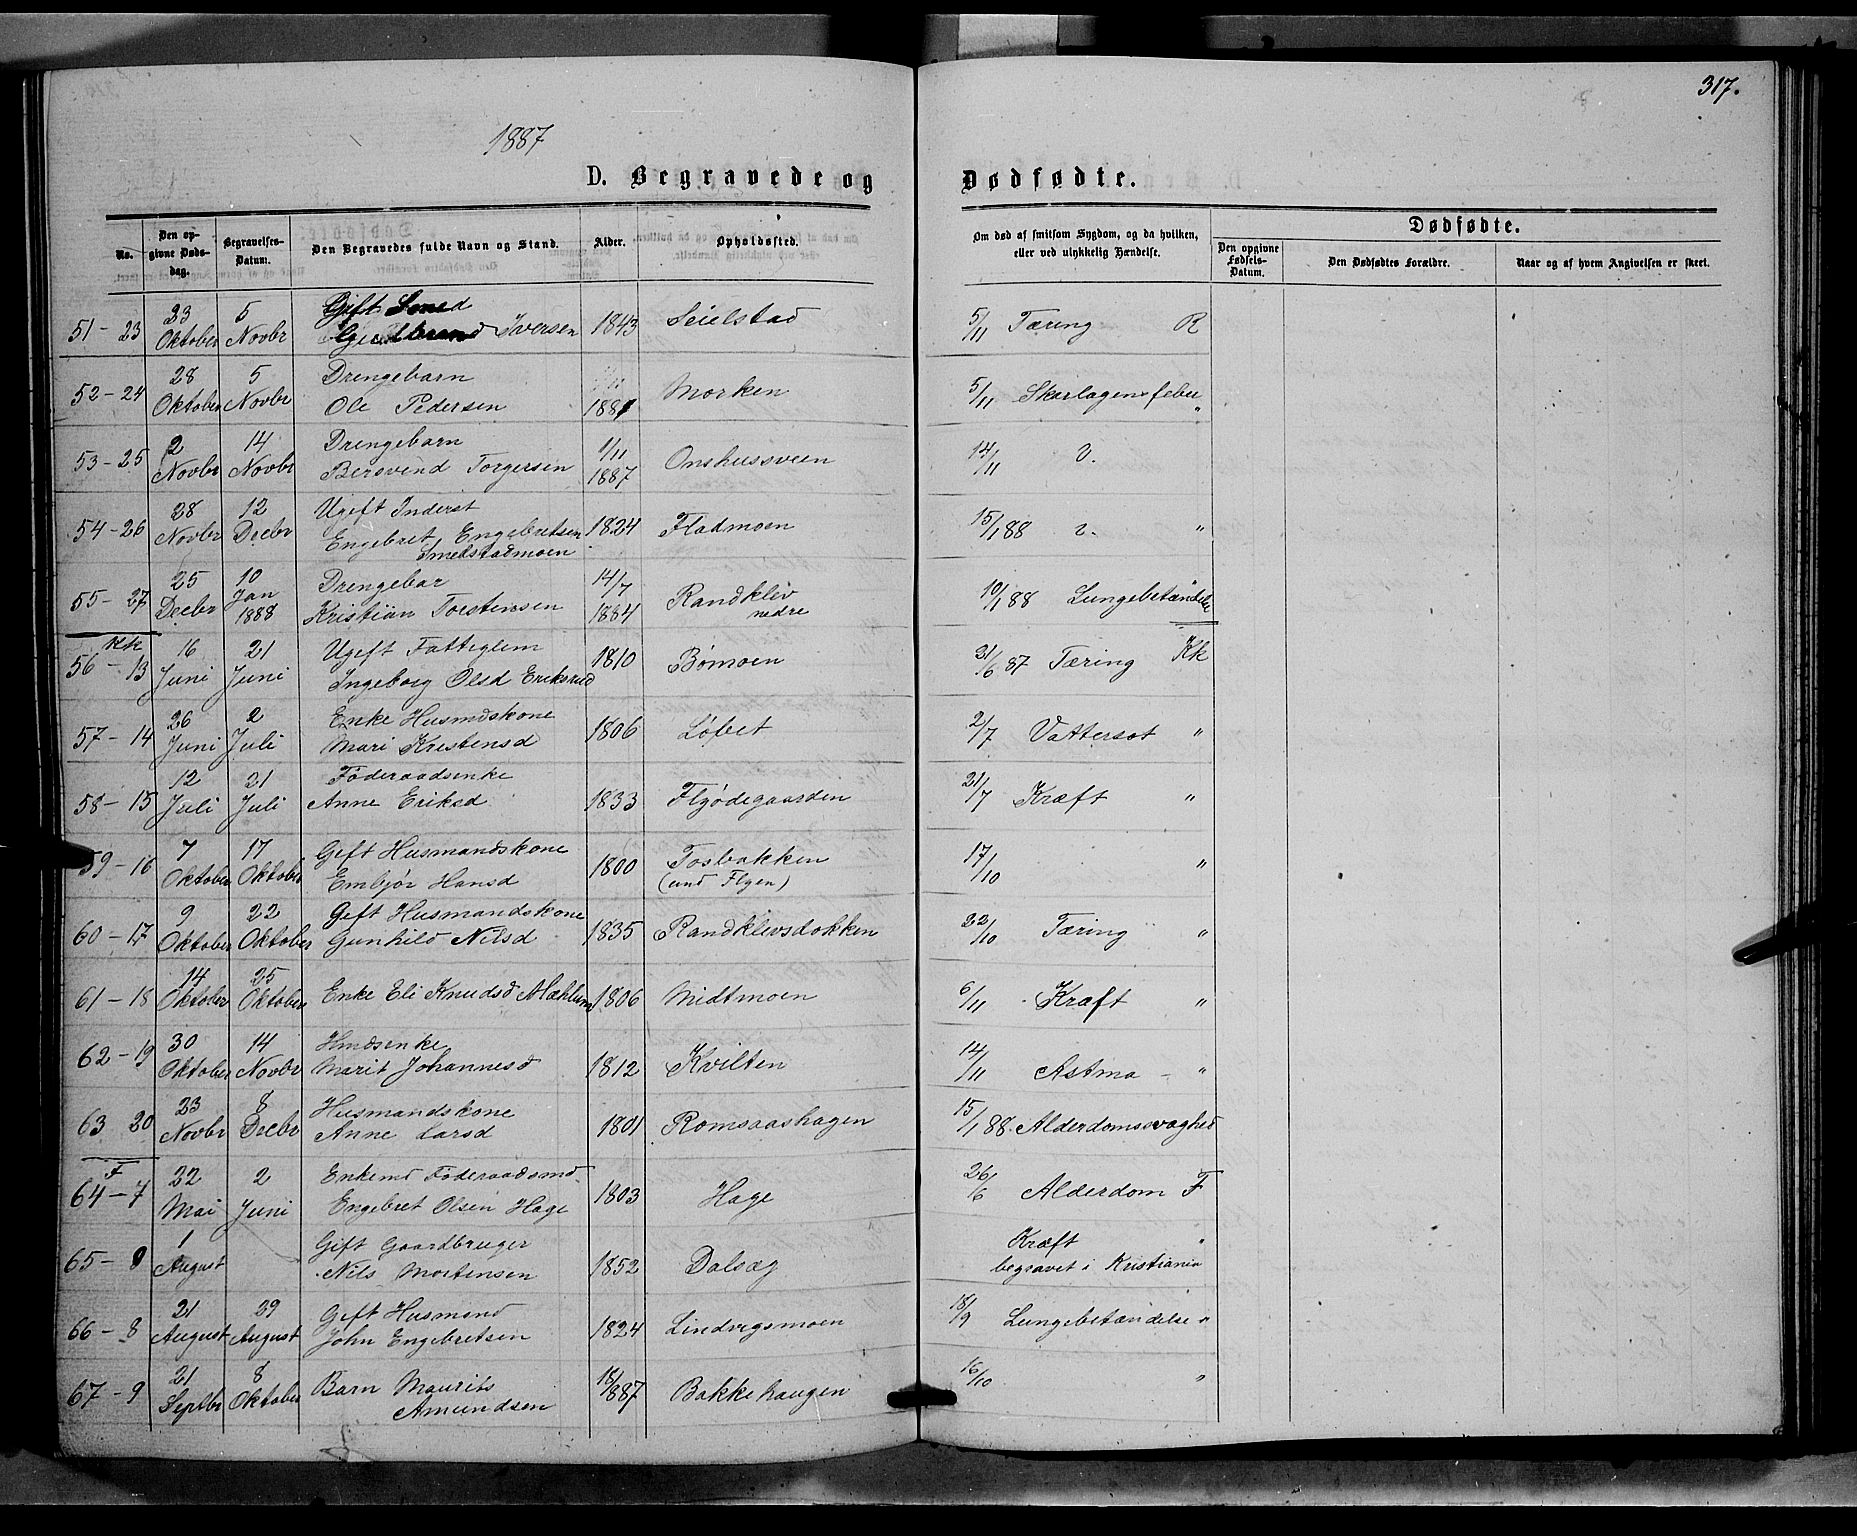 317.
1887
D. Begravede og Dødfødte.
No.
Den opgivne Dødsdag.
Begravelses-Datum.
Den Begravedes fulde Navn og Stand.
Alder.
Opholdssted.
Om død af smitsom Sygdom, og da hvilken, eller ved ulykkelig Hændelse.
Dødfødte.
Den opgivne Fødsels-Datum.
Den Dødfødtes Forældre.
Naar og af hvem Angivelsen er skeet.
51-23 23 Oktober 5 Novbr Gift Smed Gudbrand Iversen 1843 Seielstad 5/11 Tæring R
52-24 28 Oktober 5 Novbr Drengebarn Ole Pedersen 1881 Morken 5/11 Skarlagensfeber "
53-25 2 Novbr 14 Novbr Drengebarn Bersvend Torgersen 1/11 1887 Onshussveen 14/11
54-26 28 Novbr 12 Decbr Ugift Inderst Engebret Engebretsen Smedstadmoen 1824 Fladmoen 15/1 88 "
55-27 25 Decbr 10 Jan 1888 Drengebar Kristian Torstensen 14/7 1884 Randklev nedre 10/1 88 Lungebetændelse
Kk
56-13 16 Juni 21 Juni Ugift Fattiglem Ingeborg Olsd Eriksrud 1810 Bømoen 21/6 87 Tæring Kk
57-14 26 Juni 2 Juli Enke Husmdskone Mari Kristensd 1806 Løbet 2/7 Vattersot "
58-15 12 Juli 21 Juli Føderaadsenke Anne Eriksd 1833 Flyødegaarden 21/7 Kræft "
59-16 7 Oktober 17 Oktober Gift Husmandskone Embjør Hansd 1800 Tosbakken (und Flyen) 17/10 "
60-17 9 Oktober 22 Oktober Gift Husmandskone Gunhild Nilsd 1835 Randklevsdokken 22/10 Tæring "
61-18 14 Oktober 25 Oktober Enke Eli Knudsd Mæhlum 1806 Midtmoen 6/11 Kræft "
62-19 30 Oktober 14 Novbr Hmdsenke Marit Johannesd 1812 Kvilten 14/11 Astma - "
63-20 23 Novbr 8 Decbr Husmandskone Anne Larsd 1801 Romsaashagen 15/1 88. Alderdomssvaghed
F
64-7 22 Mai 2 Juni Enkemd Føderaadsmd Engebret Olsen Hage 1803 Hage 26/6 Alderdom F
65- 1 August Gift Gaardbruger Nils Mortensen 1852 Dalsæg Kræft begravet i Kristiania "
66-8 21 August 29 August Gift Husmand John Engebretsen 1824 Lindvigsmoen 18/9 Lungebetændelse "
67-9 21 Septbr 8 Oktober Barn Maurits Amundsen 18/8 87 Bakkehaugen 16/10 "